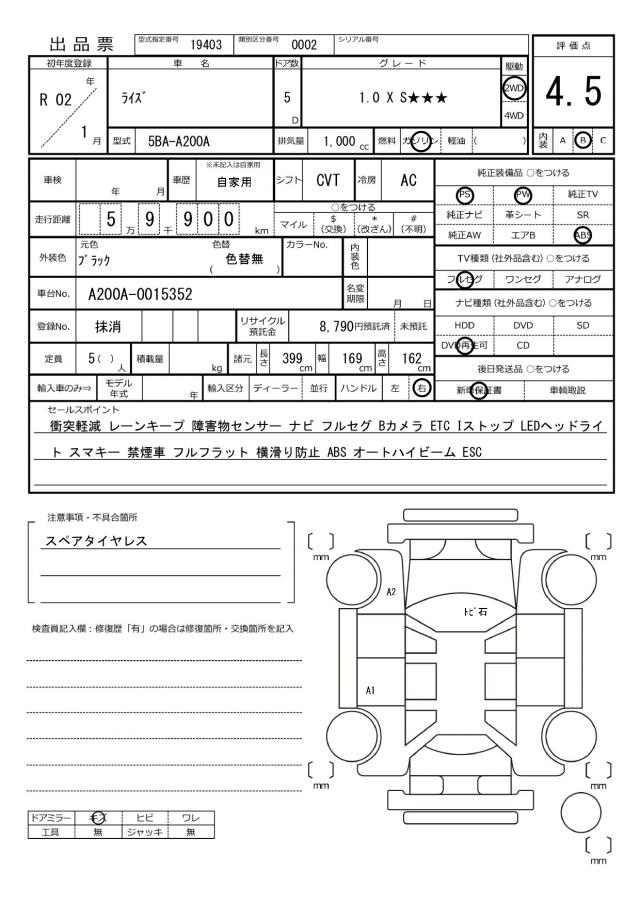 出品票 型式指定番号 19403 類別区分番号 0002 シリアル番号
初年度登録 車名 ドア数 グレード 駆動 評価点
R 02 年 1 月 ライズ 5 D 1.0 X S★★★ 2WD 4WD 4.5
型式 5BA-A200A 排気量 1,000 cc 燃料 ガソリン 軽油 ( ) 内装 A B C
車検 年 月 車歴 ※未記入は自家用 自家用 シフト CVT 冷房 AC
純正装備品 ○をつける
PS PW 純正TV
純正ナビ 革シート SR
純正AW エアB ABS
走行距離 5 万 9 千 9 0 0 km
○をつける
マイル $(交換) *(改ざん) #(不明)
外装色 元色 ブラック 色替 ( 色替無 ) カラーNo. 内装色
TV種類(社外品含む) ○をつける
フルセグ ワンセグ アナログ
車台No. A200A-0015352 名変期限 月 日
ナビ種類(社外品含む) ○をつける
HDD DVD SD
DVD再生可 CD
登録No. 抹消 リサイクル預託金 8,790円預託済 未預託
定員 5 ( ) 人 積載量 kg 諸元 長さ 399 cm 幅 169 cm 高さ 162 cm
後日発送品 ○をつける
新車保証書 車輌取説
輸入車のみ⇒ モデル年式 年 輸入区分 ディーラー 並行 ハンドル 左 右
セールスポイント
衝突軽減 レーンキープ 障害物センサー ナビ フルセグ Bカメラ ETC Iストップ LEDヘッドライ
ト スマキー 禁煙車 フルフラット 横滑り防止 ABS オートハイビーム ESC
注意事項・不具合箇所
スペアタイヤレス
検査員記入欄：修復歴「有」の場合は修復箇所・交換箇所を記入
〔 〕 mm
〔 〕 mm
A2
トビ石
A1
〔 〕 mm
〔 〕 mm
〔 〕 mm
ドアミラー キズ ヒビ ワレ
工具 無 ジャッキ 無